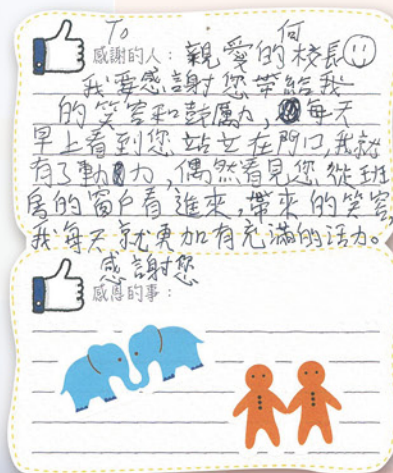 To
感謝的人：親愛的何校長
我要感謝您帶給我
的笑容和鼓勵力，每天
早上看到您站立在門口，我就
有了動力，偶然看見您從班
房的窗戶看進來，帶來的笑容，
我每天就更加有充滿的活力。
感謝您
感恩的事：